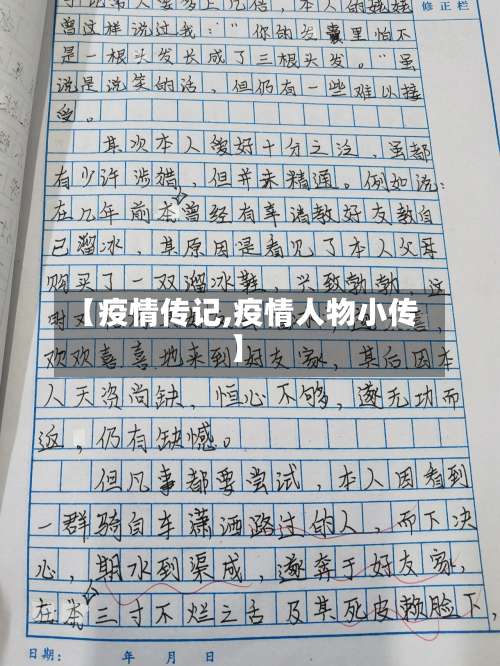 修正栏
曾这样说过我：“你的发囊里怕不
是一根头发长成了三根头发。”虽
说是说笑的话，但仍有一些难以接
受。
某次本人爱好十分之泛，虽都
有少许涉猎，但并未精通。例如说：
在几年前本曾经有幸请教好友教自
己溜冰，某原因是看见了本人父母
购买了一双溜冰鞋，兴致勃勃，这
时
【疫情传记,疫情人物小传
】
欢欢喜喜地来到好友家，其后因本
人天资尚缺，恒心不够，遂无功而
返，仍有缺憾。
但凡事都要尝试，本人因看到
一群骑自车潇洒路过的人，而下决
心，期水到渠成，遂奔于好友家，
在本三寸不烂之舌及某死皮赖脸下，
日期： 年 月 日